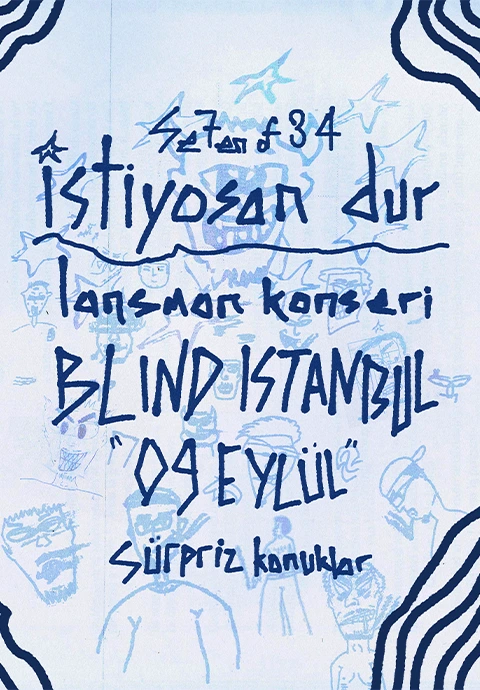 Se7en of 34
istiyosan dur
lansman konseri
BLIND ISTANBUL
"09 EYLÜL"
Sürpriz konuklar